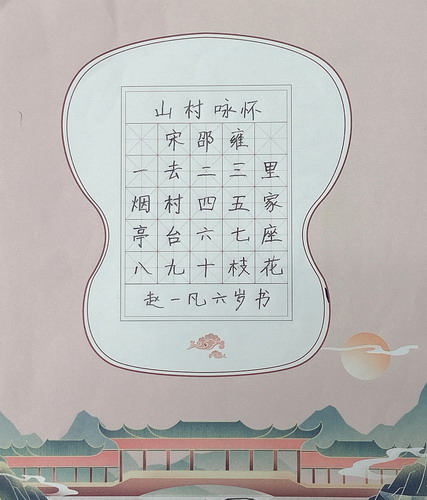 山村咏怀
宋邵雍
一去二三里
烟村四五家
亭台六七座
八九十枝花
赵一凡六岁书